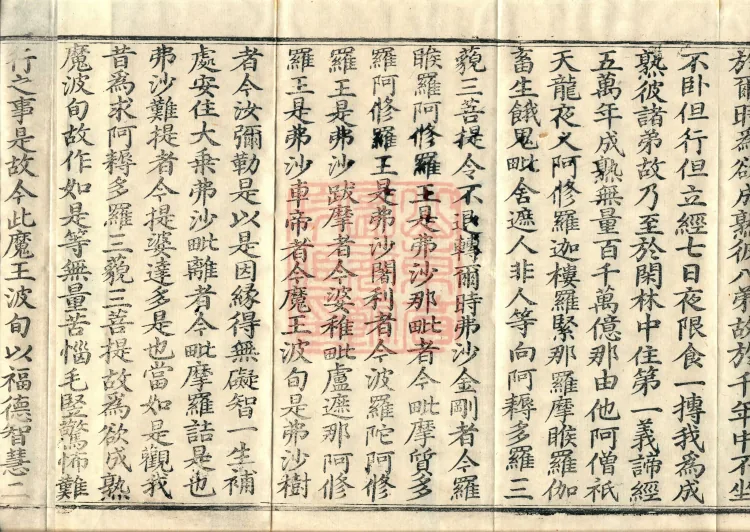 於爾時為欲成熟彼八弟故於千年中不坐
不卧但行但立經七日夜限食一摶我為成
熟彼諸弟故乃至於閑林中住第一義諦經
五萬年成熟無量百千萬億那由他阿僧祇
天龍夜叉阿修羅迦樓羅緊那羅摩睺羅伽
畜生餓鬼毗舍遮人非人等向阿耨多羅三
藐三菩提令不退轉爾時弗沙金剛者今羅
睺羅阿修羅王是弗沙那毗者今毗摩質多
羅阿修羅王是弗沙闍利者今波羅陀阿修
羅王是弗沙跋摩者今婆稚毗盧遮那阿修
羅王是弗沙車帝者今魔王波旬是弗沙樹
者今汝彌勒是以是因緣得無礙智一生補
處安住大乘弗沙毗離者今毗摩羅詰是也
弗沙難提者今提婆達多是也當如是觀我
昔為求阿耨多羅三藐三菩提故為欲成熟
魔波旬故作如是等無量苦惱毛豎驚怖難
行之事是故今此魔王波旬以福德智慧二